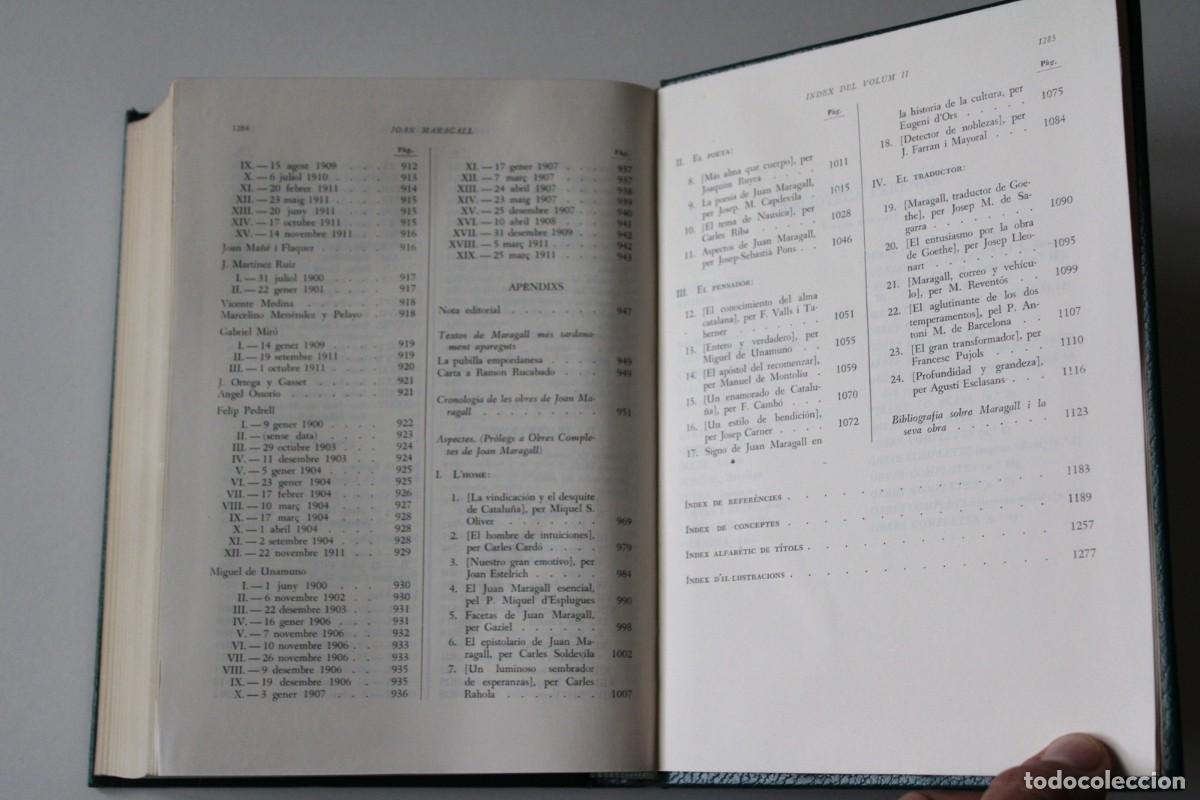 1284
JOAN MARAGALL
Pàg.
IX. — 15 agost 1909 . . . . 912
X. — 6 juliol 1910 . . . . 913
XI. — 20 febrer 1911 . . . . 914
XII. — 23 maig 1911 . . . . 915
XIII. — 20 juny 1911 . . . . 915
XIV. — 17 octubre 1911 . . . . 915
XV. — 14 novembre 1911 . . . . 916
Joan Mañé i Flaquer . . . . 916
J. Martínez Ruiz
I. — 31 juliol 1900 . . . . 917
II. — 22 gener 1901 . . . . 917
Vicente Medina . . . . 918
Marcelino Menéndez y Pelayo . . 918
Gabriel Miró
I. — 14 gener 1909 . . . . 919
II. — 19 setembre 1911 . . . . 919
III. — 1 octubre 1911 . . . . 920
J. Ortega y Gasset . . . . 921
Angel Ossorio . . . . 921
Felip Pedrell
I. — 9 gener 1900 . . . . 922
II. — (sense data) . . . . 923
III. — 29 octubre 1903 . . . . 924
IV. — 11 desembre 1903 . . . . 924
V. — 5 gener 1904 . . . . 925
VI. — 23 gener 1904 . . . . 925
VII. — 17 febrer 1904 . . . . 926
VIII. — 10 març 1904 . . . . 927
IX. — 17 març 1904 . . . . 928
X. — 1 abril 1904 . . . . 928
XI. — 2 setembre 1904 . . . . 928
XII. — 22 novembre 1911 . . . . 929
Miguel de Unamuno
I. — 1 juny 1900 . . . . 930
II. — 6 novembre 1902 . . . . 930
III. — 22 desembre 1903 . . . . 931
IV. — 16 gener 1906 . . . . 931
V. — 7 novembre 1906 . . . . 932
VI. — 10 novembre 1906 . . . . 933
VII. — 26 novembre 1906 . . . . 933
VIII. — 9 desembre 1906 . . . . 935
IX. — 19 desembre 1906 . . . . 935
X. — 3 gener 1907 . . . . 936
Pàg.
XI. — 17 gener 1907 . . . . 937
XII. — 7 març 1907 . . . . 937
XIII. — 24 abril 1907 . . . . 938
XIV. — 23 maig 1907 . . . . 939
XV. — 25 desembre 1907 . . . . 940
XVI. — 10 abril 1908 . . . . 941
XVII. — 31 desembre 1909 . . . . 942
XVIII. — 5 març 1911 . . . . 942
XIX. — 25 març 1911 . . . . 943
APÈNDIXS
Nota editorial . . . . 947
Textos de Maragall més tardana-
ment apareguts
La pubilla empordanesa . . . . 949
Carta a Ramon Rucabado . . . . 949
Cronologia de les obres de Joan Ma-
ragall . . . . 951
Aspectes. (Pròlegs a Obres Comple-
tes de Joan Maragall)
I. L'HOME:
1. [La vindicación y el desquite
de Cataluña], per Miquel S.
Oliver . . . . 969
2. [El hombre de intuiciones],
per Carles Cardó . . . . 979
3. [Nuestro gran emotivo], per
Joan Estelrich . . . . 984
4. El Juan Maragall esencial,
pel P. Miquel d'Esplugues 990
5. Facetas de Juan Maragall,
per Gaziel . . . . 998
6. El epistolario de Juan Ma-
ragall, per Carles Soldevila 1002
7. [Un luminoso sembrador
de esperanzas], per Carles
Rahola . . . . 1007
ÍNDEX DEL VOLUM II
1285
Pàg.
II. EL POETA:
8. [Más alma que cuerpo], per
Joaquim Ruyra . . . . 1011
9. La poesía de Juan Maragall,
per Josep. M. Capdevila . 1015
10. [El tema de Nausica], per
Carles Riba . . . . 1028
11. Aspectos de Juan Maragall,
per Josep-Sebastià Pons . . 1046
III. EL PENSADOR:
12. [El conocimiento del alma
catalana], per F. Valls i Ta-
berner . . . . 1051
13. [Entero y verdadero], per
Miguel de Unamuno . . . . 1055
14. [El apóstol del recomenzar],
per Manuel de Montoliu . 1059
15. [Un enamorado de Catalu-
ña], per F. Cambó . . . . 1070
16. [Un estilo de bendición],
per Josep Carner . . . . 1072
17. Signo de Juan Maragall en
Pàg.
la historia de la cultura, per
Eugeni d'Ors . . . . 1075
18. [Detector de noblezas], per
J. Farran i Mayoral . . . 1084
IV. EL TRADUCTOR:
19. [Maragall, traductor de Goe-
the], per Josep M. de Sa-
garra . . . . 1090
20. [El entusiasmo por la obra
de Goethe], per Josep Lleo-
nart . . . . 1095
21. [Maragall, correo y vehícu-
lo], per M. Reventós . . . 1099
22. [El aglutinante de los dos
temperamentos], pel P. An-
toni M. de Barcelona . . . 1107
23. [El gran transformador], per
Francesc Pujols . . . . 1110
24. [Profundidad y grandeza],
per Agustí Esclasans . . . 1116
Bibliografia sobre Maragall i la
seva obra . . . . 1123
ÍNDEX DE REFERÈNCIES . . . . 1183
ÍNDEX DE CONCEPTES . . . . 1189
ÍNDEX ALFABÈTIC DE TÍTOLS . . . . 1257
ÍNDEX D'IL·LUSTRACIONS . . . . 1277
todocoleccion